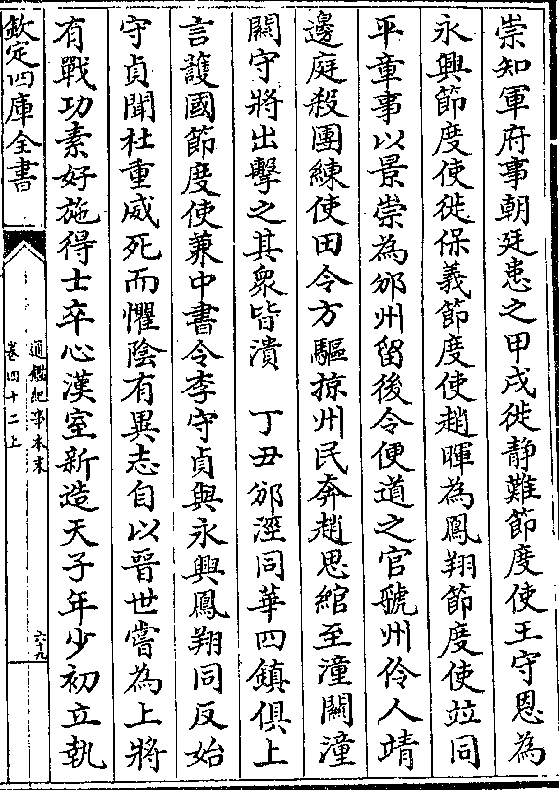 崇知軍府事朝廷患之甲戌徙静難節度使王守恩為
永興節度使徙保義節度使趙暉為鳳翔節度使竝同
平章事以景崇為邠州留後令便道之官虢州伶人靖
邊庭殺團練使田令方驅掠州民奔趙思綰至潼關潼
關守將出擊之其衆皆潰　丁丑邠涇同華四鎮俱上
言護國節度使兼中書令李守貞與永興鳳翔同反始
守貞聞杜重威死而懼陰有異志自以晉世嘗為上將
有戰功素好施得士卒心漢室新造天子年少初立執
欽定四庫全書
通鑑紀事本末
卷四十二上
六十九